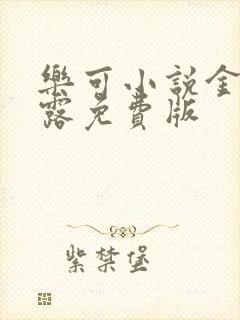 樂可小說金
露免費版
紫禁堡